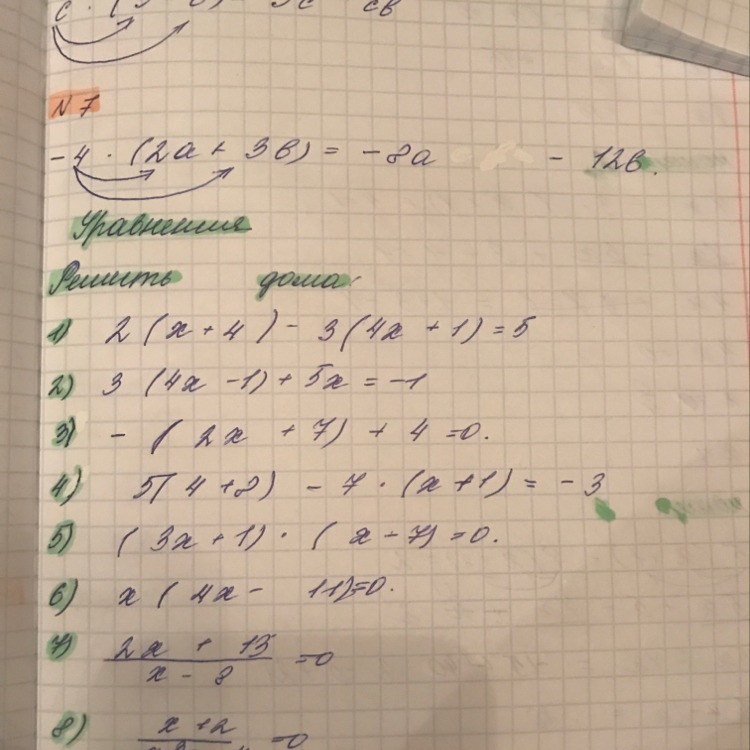 c · (3 - в) = 3c - cв
N 7
-4 · (2a + 3в) = -8a - 12в.
Уравнения
Решить дома
1) 2 (x + 4) - 3(4x + 1) = 5
2) 3 (4x - 1) + 5x = -1
3) - ( 2x + 7) + 4 = 0.
4) 5(4+2) - 7 · (x+1) = -3
5) ( 3x + 1) · ( x - 7) = 0.
6) x ( 4x - 11) = 0.
7) 2x + 15
x - 8
= 0
8) x + 2
= 0